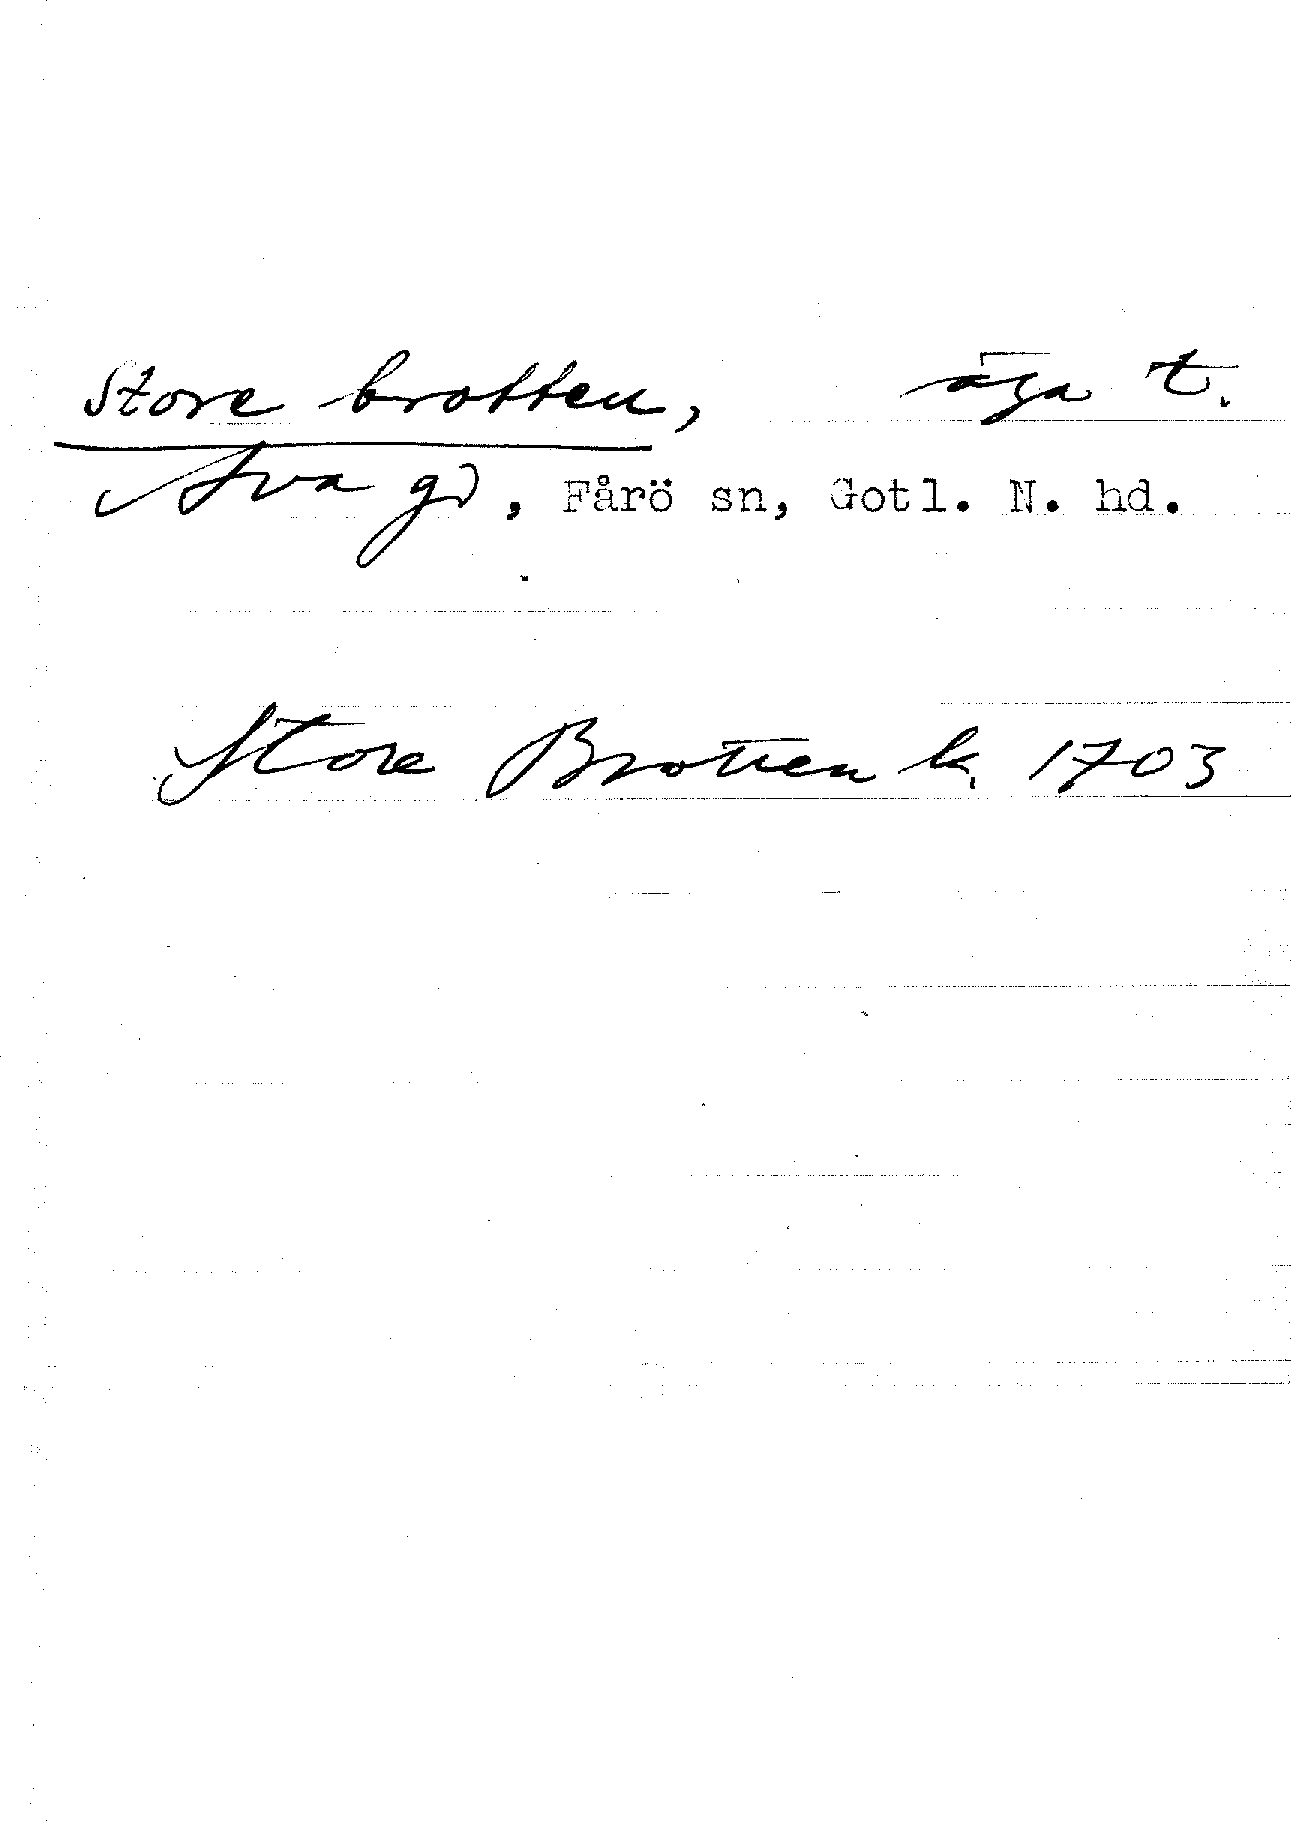 Store brotten, äga t.
Ava gd, Fårö sn, Gotl. N. hd.
Store Brotten k. 1703